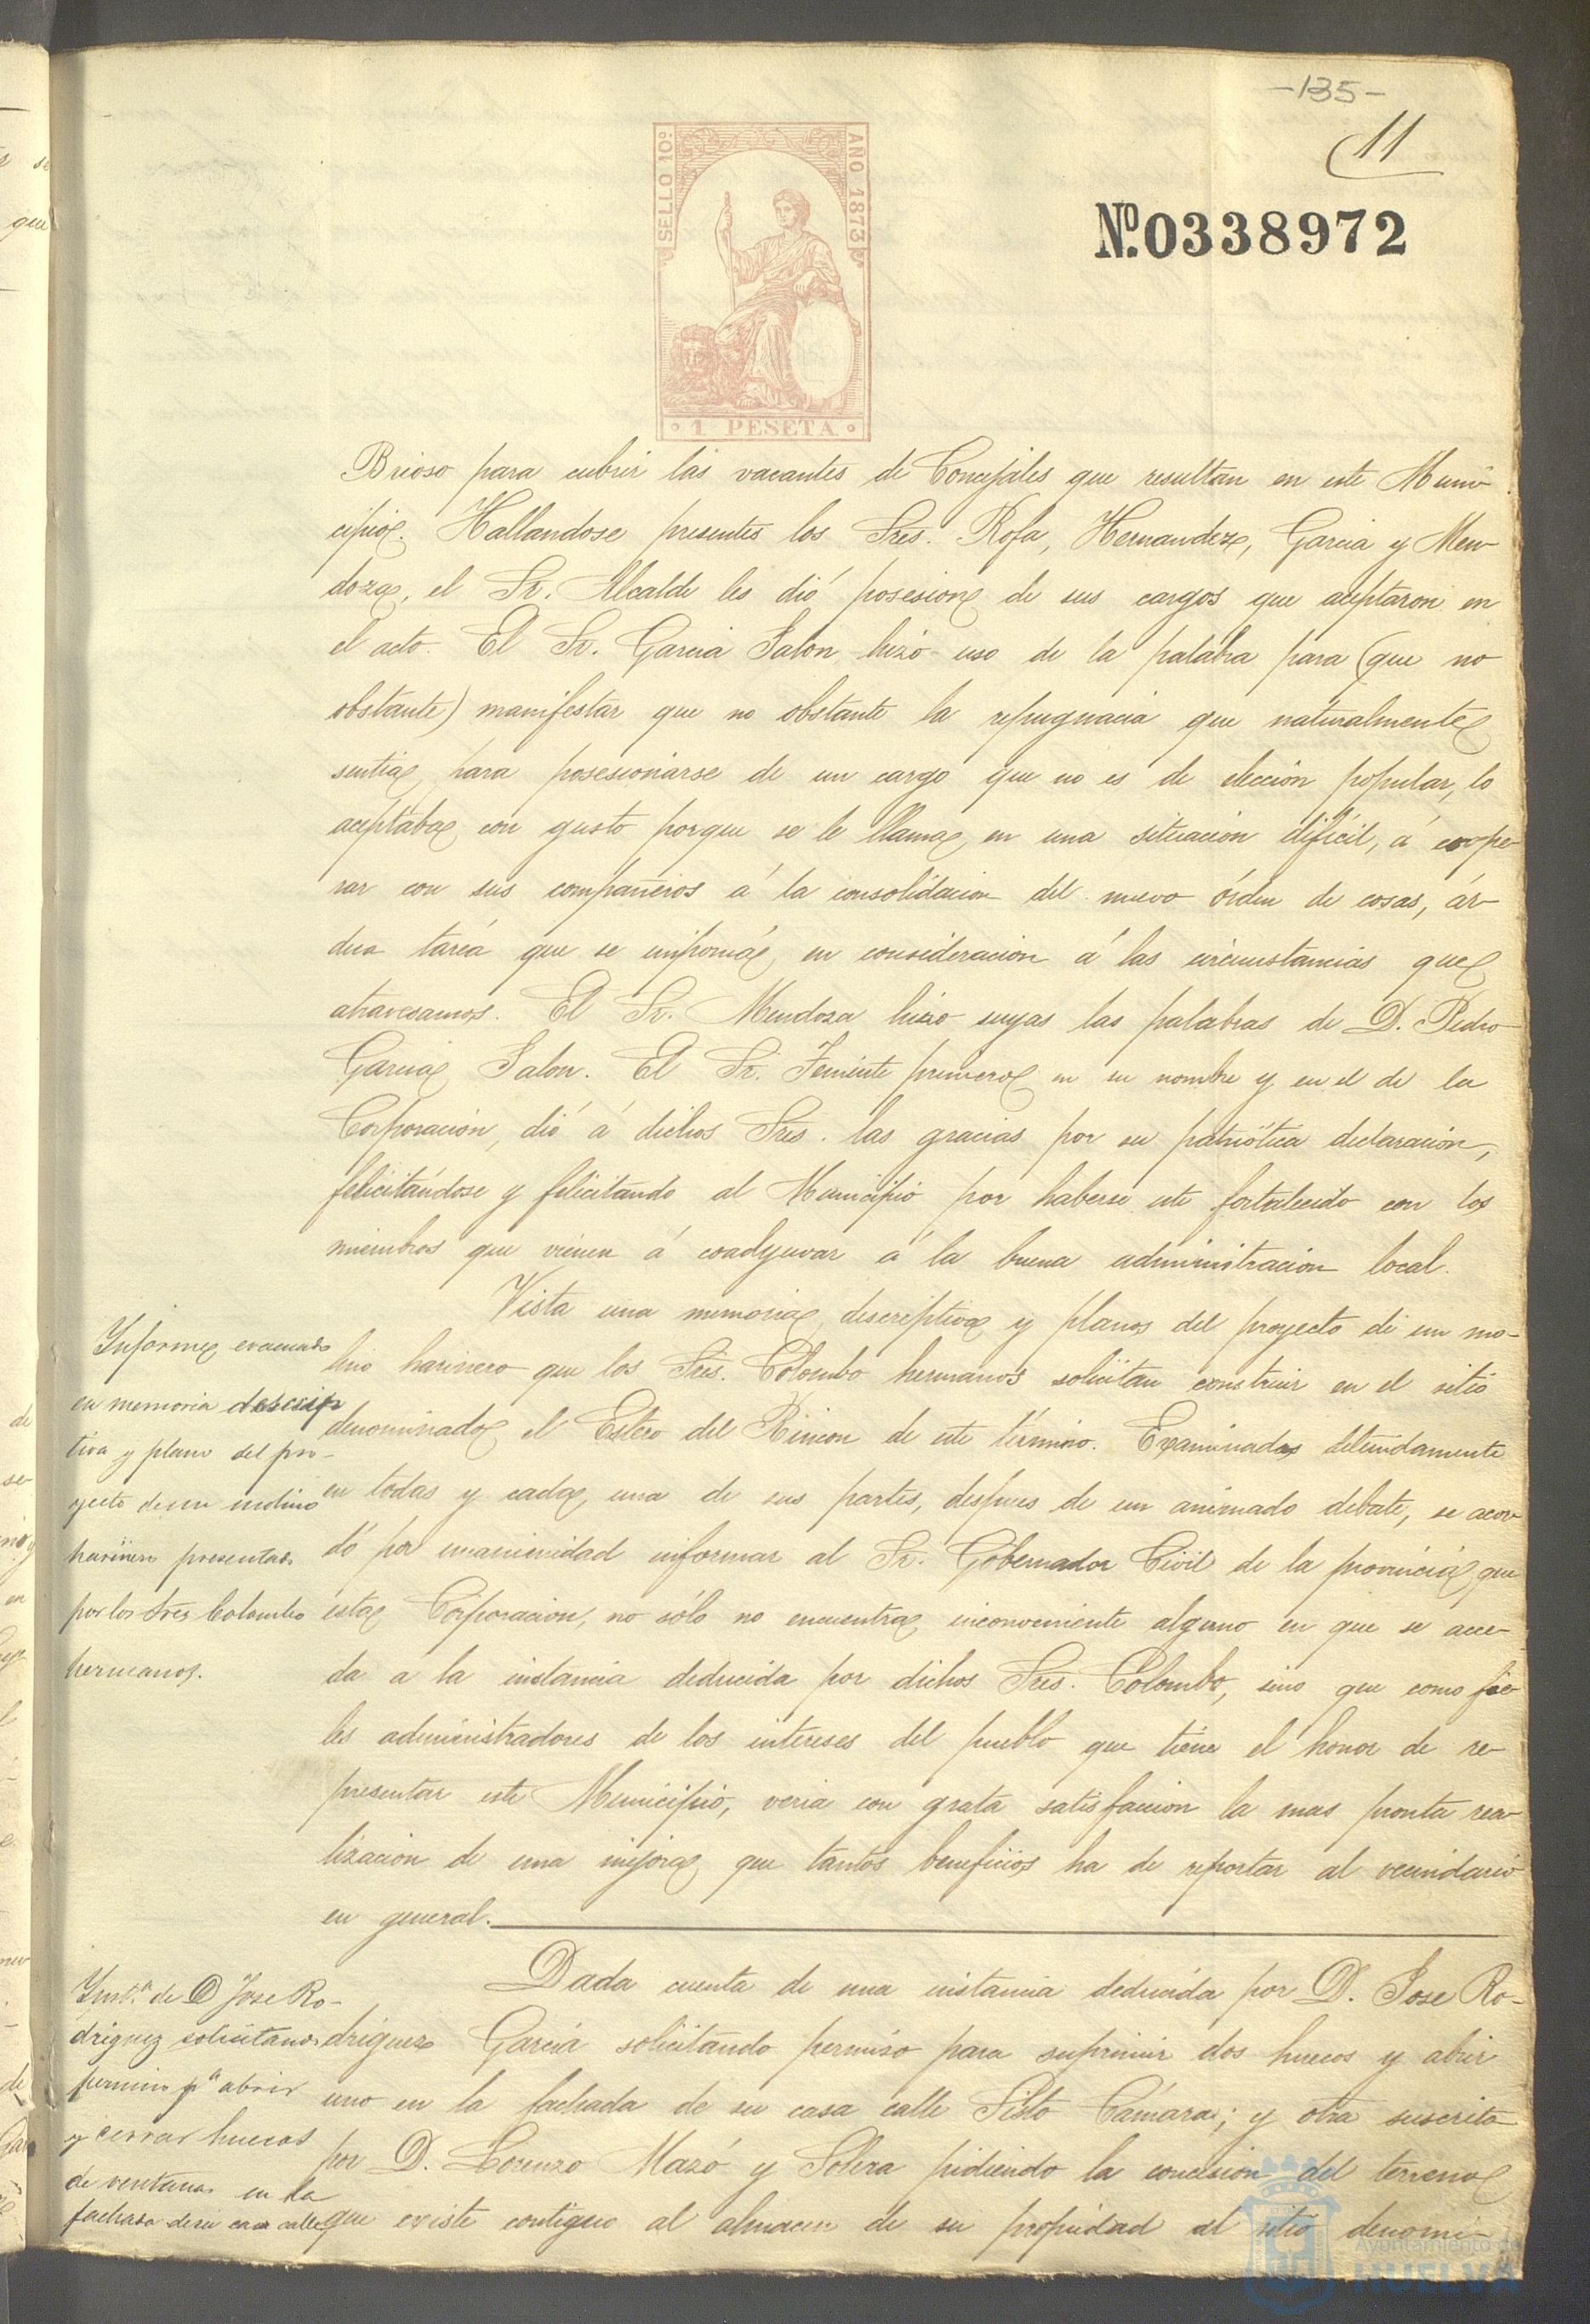 -135-
11
SELLO 10º
AÑO 1873
Nº. 0338972
1 PESETA
Brioso para cubrir las vacantes de Concejales que resultan en este Muni-
cipio. Hallandose presentes los Sres. Rofa, Hernandez, Garcia y Men-
doza, el Sr. Alcalde les dió posesion de sus cargos que aceptaron en
el acto. El Sr. Garcia Salon hizo uso de la palabra para (que no
obstante) manifestar que no obstante la repugnacia que naturalmente
sentia para posesionarse de un cargo que no es de elección popular, lo
aceptaba con gusto porque se le llama en una situacion dificil, á coope-
rar con sus compañeros á la consolidacion del nuevo órden de cosas, ár-
dua tarea que se imponia en consideracion á las circunstancias que
atravesamos. El Sr. Mendoza hizo suyas las palabras de D. Pedro
Garcia Salon. El Sr. Teniente primero en su nombre y en el de la
Corporacion, dió á dichos Sres. las gracias por su patriótica declaracion,
felicitándose y felicitando al Municipio por haberse este fortalecido con los
miembros que vienen á coadyuvar á la buena administracion local.
Informe evacuado
en memoria descrip
tiva y plano del pro-
yecto de un molino
harinero presentado
por los Sres Colombo
hermanos.
Vista una memoria descriptiva y planos del proyecto de un mo-
lino harinero que los Sres. Colombo hermanos solicitan construir en el sitio
denominado el Estero del Rincon de este término. Examinados detenidamente
en todas y cada una de sus partes, despues de un animado debate, se acor-
dó por unanimidad informar al Sr. Gobernador Civil de la provincia, que
esta Corporacion, no sólo no encuentra inconveniente alguno en que se acce-
da á la instancia deducida por dichos Sres. Colombo, sino que como fie-
les administradores de los intereses del pueblo que tiene el honor de re-
presentar este Municipio, veria con grata satisfaccion la mas pronta rea-
lizacion de una mejora que tantos beneficios ha de reportar al vecindario
en general.
Inst.ª de D Jose Ro-
driguez solicitando
permiso pª abrir
y cerrar huecos
de ventanas en la
fachada de su casa calle
Dada cuenta de una instancia deducida por D. Jose Ro-
driguez Garcia solicitando permiso para suprimir dos huecos y abrir
uno en la fachada de su casa calle Sisto Cámara; y otra suscrita
por D. Lorenzo Mazó y Solera pidiendo la concesion del terreno
que existe contiguo al almacen de su propiedad al sitio denomi-
Ayuntamiento de
HUELVA